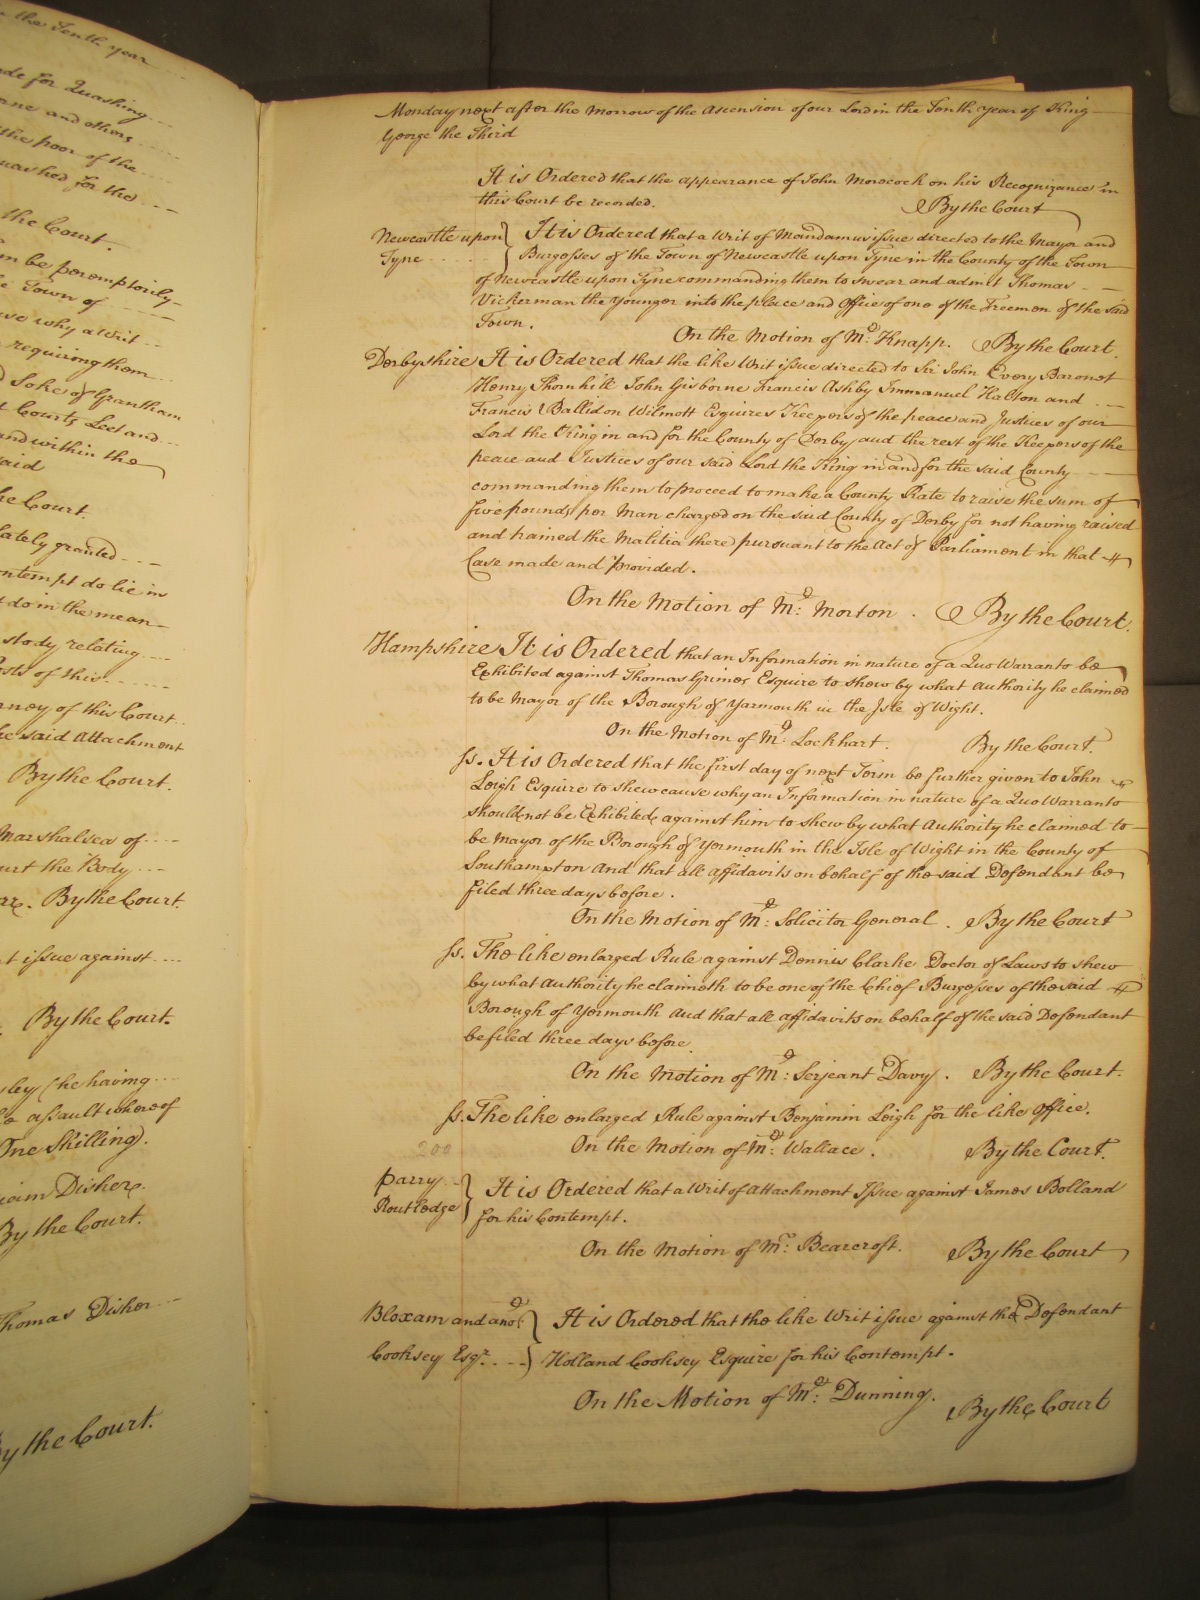 in the Tenth year
ade for Quashing
orne and others
the poor of the
uashed for the
the Court.
m be peremptorily
e Town of
use why a Writ
requiring them
d Soke of Grantham
t Courts Leet and
and within the
said
he Court.
lately granted
ontempt do lie in
t do in the mean
stody relating
osts of this
rney of this Court
he said Attachment
By the Court.
Marshalsea of
urt the Body
By the Court.
t issue against
By the Court.
sley (he having
e assault whereof
One Shilling).
iam Disher.
By the Court.
Thomas Disher
By the Court.
Monday next after the Morrow of the Ascension of our Lord in the Tenth year of King
George the Third
It is Ordered that the appearance of John Morecock on his Recognizance in
this Court be recorded. By the Court
Newcastle upon } It is Ordered that a Writ of Mandamus issue directed to the Mayor and
Tyne . . . . Burgesses of the Town of Newcastle upon Tyne in the County of the Town
of Newcastle upon Tyne commanding them to swear and admit Thomas
Vickerman the younger into the place and Office of one of the Freemen of the said
Town. On the Motion of Mr: Knapp. By the Court.
Derbyshire It is Ordered that the like Writ issue directed to Sir John Every Baronet
Henry Thornhill John Gisborne Francis Ashby Immanuel Halton and
Francis Ballidon Wilmott Esquires Keepers of the peace and Justices of our
Lord the King in and for the County of Derby and the rest of the Keepers of the
peace and Justices of our said Lord the King in and for the said County
commanding them to proceed to make a County Rate to raise the sum of
five pounds per Man charged on the said County of Derby for not having raised
and trained the Malitia there pursuant to the Act of Parliament in that
Case made and provided.
On the Motion of Mr: Morton. By the Court.
Hampshire It is Ordered that an Information in nature of a Quo Warranto be
Exhibited against Thomas Grimes Esquire to shew by what Authority he claimed
to be Mayor of the Borough of Yarmouth in the Isle of Wight.
On the Motion of Mr: Lockhart. By the Court.
ss. It is Ordered that the first day of next Term be further given to John
Leigh Esquire to shew cause why an Information in nature of a Quo Warranto
should not be Exhibited against him to shew by what Authority he claimed to
be Mayor of the Borough of Yarmouth in the Isle of Wight in the County of
Southampton And that all affidavits on behalf of the said Defendant be
filed three days before.
On the Motion of Mr: Solicitor General. By the Court
ss. The like enlarged Rule against Dennis Clarke Doctor of Laws to shew
by what Authority he claimeth to be one of the Chief Burgesses of the said
Borough of Yermouth And that all affidavits on behalf of the said Defendant
be filed three days before
On the Motion of Mr: Serjeant Davy. By the Court.
ss. The like enlarged Rule against Benjamin Leigh for the like Office.
200 On the Motion of Mr: Wallace. By the Court.
Parry } It is Ordered that a Writ of Attachment Issue against James Bolland
Routledge for his Contempt.
On the Motion of Mr: Bearcroft. By the Court
Bloxam and anor } It is Ordered that the like Writ issue against the Defendant
Cooksey Esqr. . . . Holland Cooksey Esquire for his Contempt.
On the Motion of Mr: Dunning. By the Court